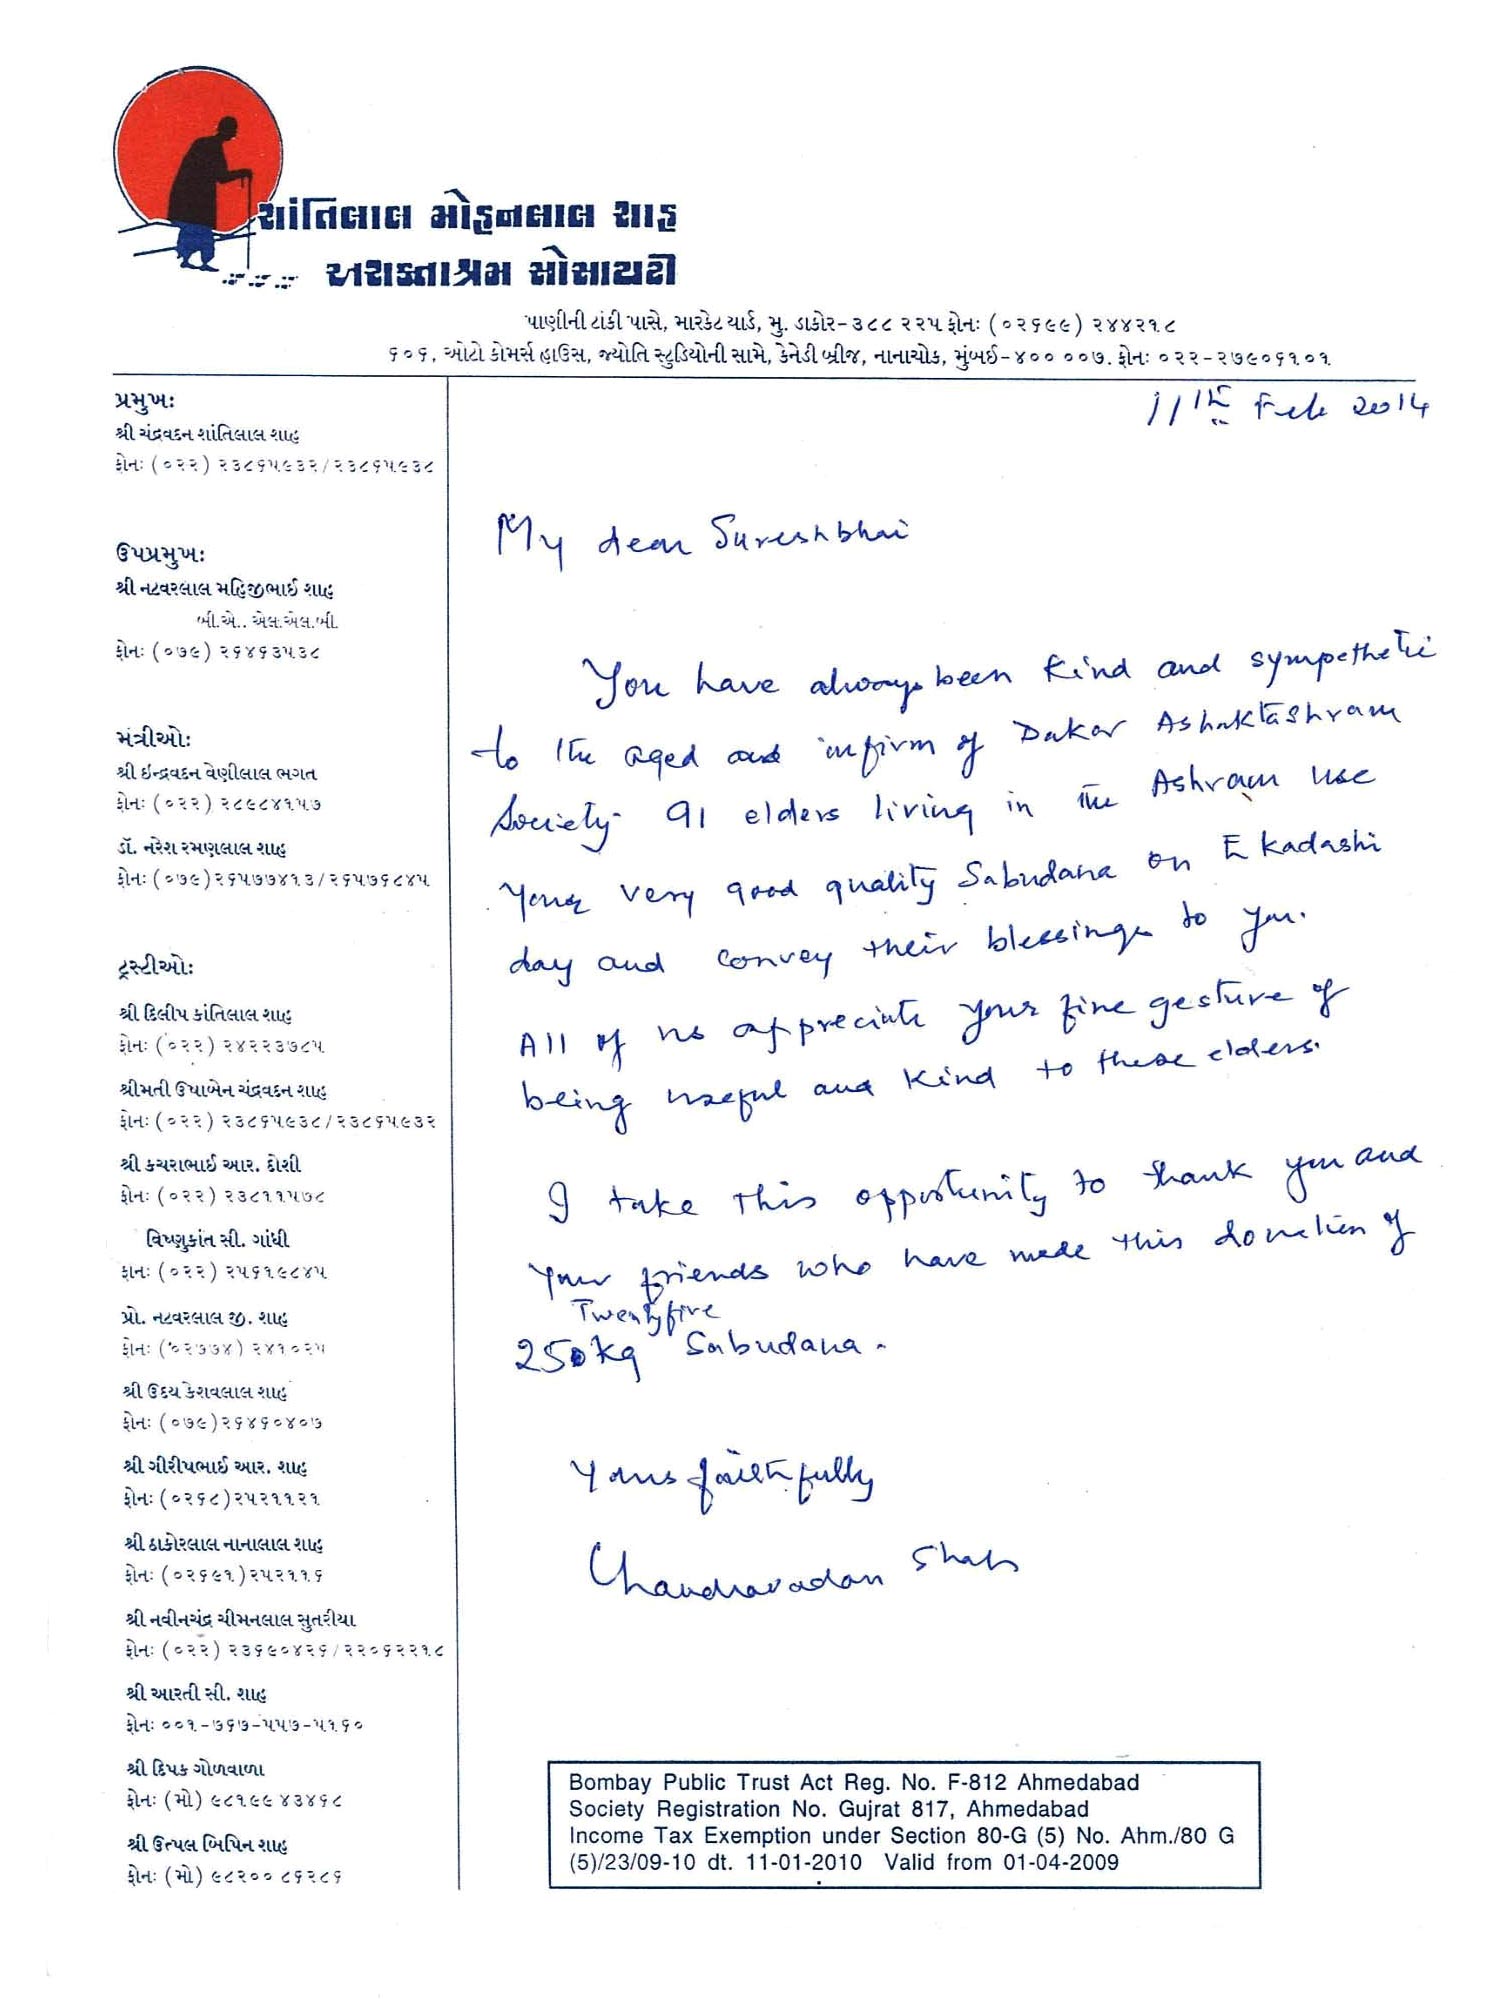 શાંતિલાલ મોહનલાલ શાહ
અશક્તાશ્રમ સોસાયટી
પાણીની ટાંકી પાસે, માર્કેટ યાર્ડ, મુ. ડાકોર-૩૮૮ ૨૨૫ ફોનઃ (૦૨૬૯૯) ૨૪૪૨૧૮
૬૦૬, ઓટો કોમર્સ હાઉસ, જ્યોતિ સ્ટુડિયોની સામે, કેનેડી બ્રીજ, નાનાચોક, મુંબઈ-૪૦૦ ૦૦૭. ફોનઃ ૦૨૨-૨૭૯૦૬૧૦૧
પ્રમુખઃ
શ્રી ચંદ્રવદન શાંતિલાલ શાહ
ફોનઃ (૦૨૨) ૨૩૮૬૫૯૩૨/૨૩૮૬૫૯૩૮
ઉપપ્રમુખઃ
શ્રી નટવરલાલ મહિજીભાઈ શાહ
બી.એ., એલ.એલ.બી.
ફોનઃ (૦૭૯) ૨૬૪૬૩૫૩૮
મંત્રીઓઃ
શ્રી ઇન્દ્રવદન વેણીલાલ ભગત
ફોનઃ (૦૨૨) ૨૮૯૮૪૧૫૭
ડૉ. નરેશ રમણલાલ શાહ
ફોનઃ (૦૭૯)૨૬૫૭૭૪૧૩/૨૬૫૭૬૮૪૫
ટ્રસ્ટીઓઃ
શ્રી દિલીપ કાંતિલાલ શાહ
ફોનઃ (૦૨૨) ૨૪૨૨૩૭૮૫
શ્રીમતી ઉષાબેન ચંદ્રવદન શાહ
ફોનઃ (૦૨૨) ૨૩૮૬૫૯૩૮/૨૩૮૬૫૯૩૨
શ્રી કચરાભાઈ આર. દોશી
ફોનઃ (૦૨૨) ૨૩૮૧૧૫૭૮
વિષ્ણુકાંત સી. ગાંધી
ફોનઃ (૦૨૨) ૨૫૬૧૯૮૪૫
પ્રો. નટવરલાલ જી. શાહ
ફોનઃ (૦૨૭૭૪) ૨૪૧૦૨૫
શ્રી ઉદય કેશવલાલ શાહ
ફોનઃ (૦૭૯)૨૬૪૬૦૪૦૭
શ્રી ગીરીષભાઈ આર. શાહ
ફોનઃ (૦૨૬૮)૨૫૨૧૧૨૧
શ્રી ઠાકોરલાલ નાનાલાલ શાહ
ફોનઃ (૦૨૬૯૧)૨૫૨૧૧૬
શ્રી નવીનચંદ્ર ચીમનલાલ સુતરીયા
ફોનઃ (૦૨૨) ૨૩૬૯૦૪૨૬/૨૨૦૬૨૨૧૮
શ્રી આરતી સી. શાહ
ફોનઃ ૦૦૧-૭૬૭-૫૫૭-૫૧૬૦
શ્રી દિપક ગોળવાળા
ફોનઃ (મો) ૯૮૧૯૯ ૪૩૪૬૮
શ્રી ઉત્પલ બિપિન શાહ
ફોનઃ (મો) ૯૮૨૦૦ ૮૬૨૮૬
11th Feb 2014
My dear Sureshbhai
You have always been kind and sympathetic
to the aged and infirm of Dakor Ashaktashram
Society. 91 elders living in the Ashram use
your very good quality Sabudana on Ekadashi
day and convey their blessings to you.
All of us appreciate your fine gesture of
being useful and kind to these elders.
I take this opportunity to thank you and
your friends who have made this donation of
Twentyfive
250kg Sabudana.
Yours faithfully
Chandravadan Shah
Bombay Public Trust Act Reg. No. F-812 Ahmedabad
Society Registration No. Gujrat 817, Ahmedabad
Income Tax Exemption under Section 80-G (5) No. Ahm./80 G
(5)/23/09-10 dt. 11-01-2010 Valid from 01-04-2009